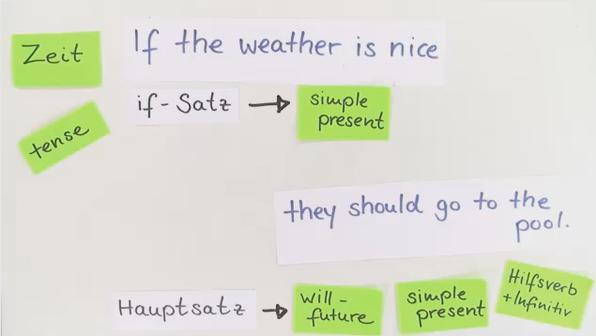 Zeit
If the weather is nice
if-Satz → simple
present
tense
they should go to the
pool.
Hauptsatz → will-
future
simple
present
Hilfsverb
+Infinitiv